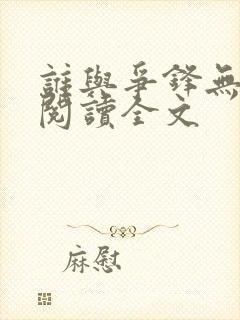 誰與爭鋒無
閱讀全文
麻慰